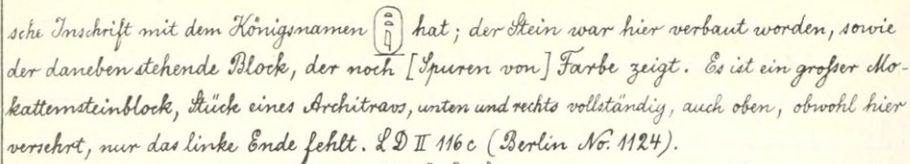 sche Inschrift mit dem Königsnamen hat; der Stein war hier verbaut worden, sowie
der daneben stehende Block, der noch [Spuren von] Farbe zeigt. Es ist ein großer Mo-
kattemsteinblock, Stück eines Architravs, unten und rechts vollständig, auch oben, obwohl hier
versehrt, nur das linke Ende fehlt. LD II 116 c (Berlin No. 1124).